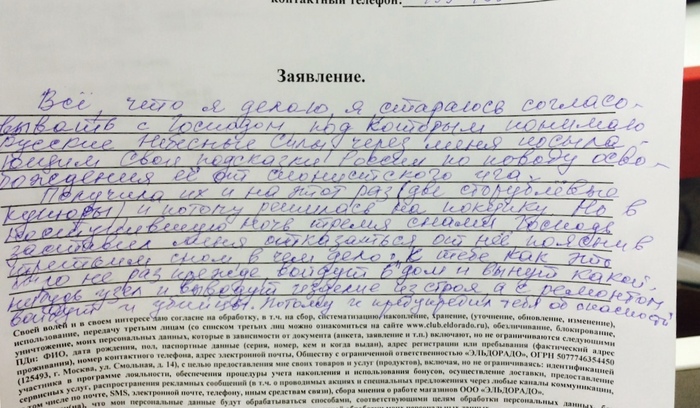 контактный телефон:
Заявление.
Всё, что я делаю я стараюсь согласо-
вывать с Господом под Которым понимаю
Русские Небесные Силы через меня посыла-
ющим Свои подсказки России по поводу осво-
бождения её от сионистского ига
Получила их и на этот раз (две сторублёвые
купюры) и потому решилась на покупку. Но в
наступившую ночь тремя снами Господь
заставил меня отказаться от неё пояснив
третьим сном, в чем дело: К тебе как это
было не раз прежде войдут в дом и вынут какой-
нибудь узел и выведут из строя а с ремонтом
войдут и убийцы. Потому и предупредил тебя об опасности
Своей волей и в своем интересе даю согласие на обработку, в т.ч. на сбор, систематизацию, накопление, хранение, (уточнение, обновление, изменение),
использование, передачу третьим лицам (со списком третьих лиц можно ознакомиться на сайте www.club.eldorado.ru), обезличивание, блокирование,
уничтожение, моих персональных данных, которые в зависимости от документа (анкета, заявление и т.п.) включают, но не ограничиваются следующими
ПДн: ФИО, дата рождения, пол, паспортные данные (серия, номер, кем и когда выдан), адрес регистрации или пребывания (фактический адрес
проживания), номер контактного телефона, адрес электронной почты, Обществу с ограниченной ответственностью «ЭЛЬДОРАДО», ОГРН 5077746354450
(125493, г. Москва, ул. Смольная, д. 14), с целью предоставления мне своих товаров и услуг (продуктов), включая, но не ограничиваясь: идентификацией
участника в программе лояльности, обеспечения процедуры учета накопления и использования бонусов, осуществление доставки, предоставление
сервисных услуг, распространения рекламных сообщений (в т.ч. о проводимых акциях и специальных предложениях через любые каналы коммуникации,
том числе по почте, SMS, электронной почте, телефону, иным средствам связи), сбора мнения о работе магазинов ООО «ЭЛЬДОРАДО».
что мои персональные данные будут обрабатываться способами, соответствующими целям обработки персональных данных